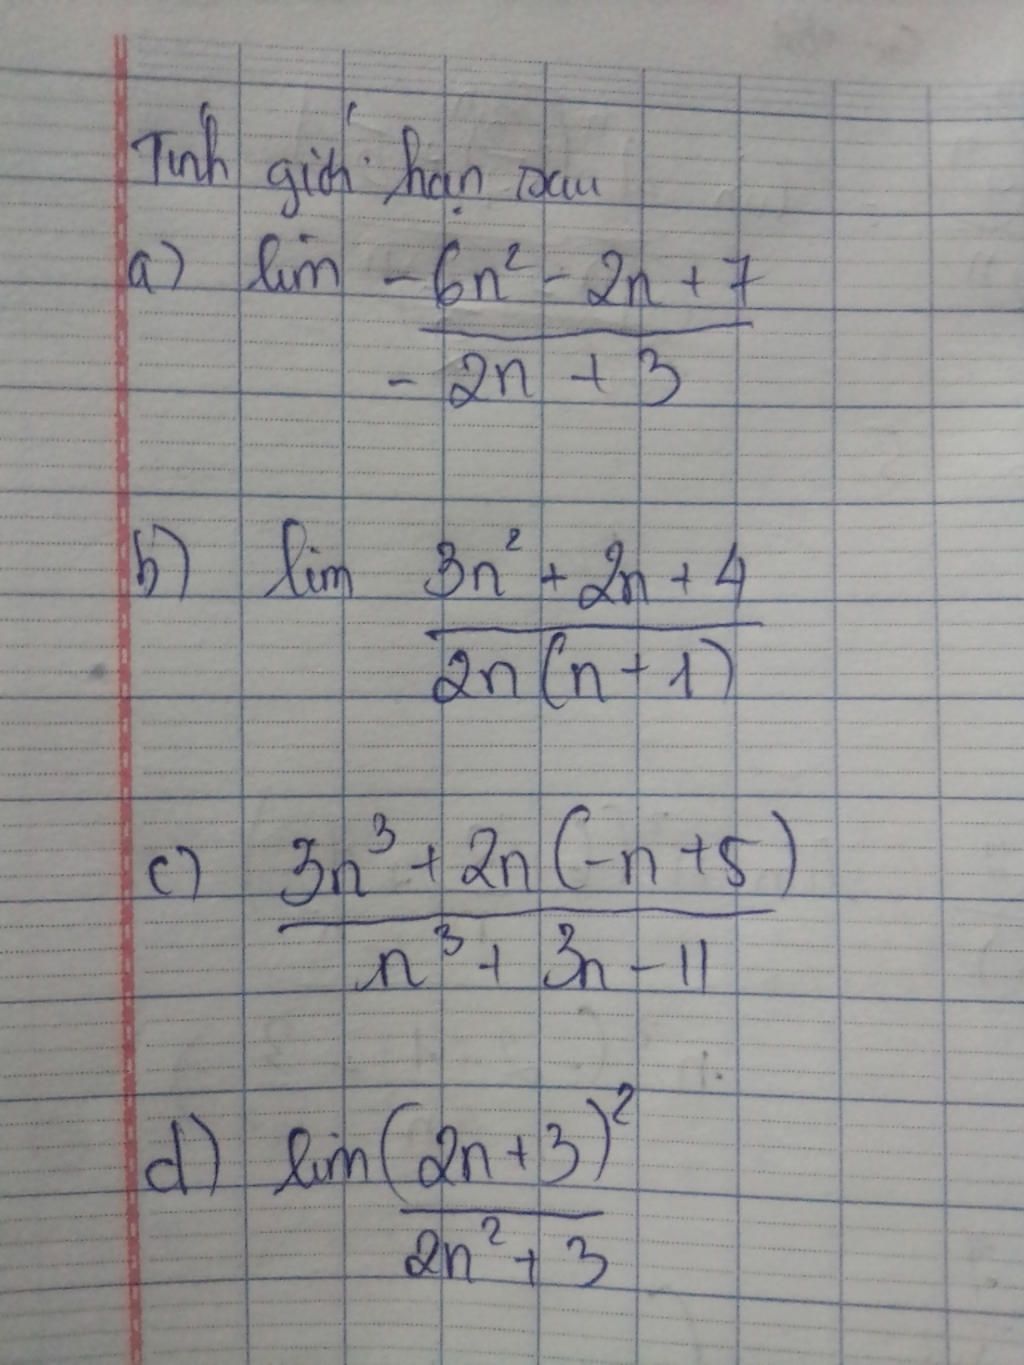 Tính giới hạn sau
a) lim -6n² - 2n + 7
- 2n + 3
b) lim 3n² + 2n + 4
2n(n + 1)
c) 3n³ + 2n(-n + 5)
n³ + 3n - 11
d) lim (2n + 3)²
2n² + 3